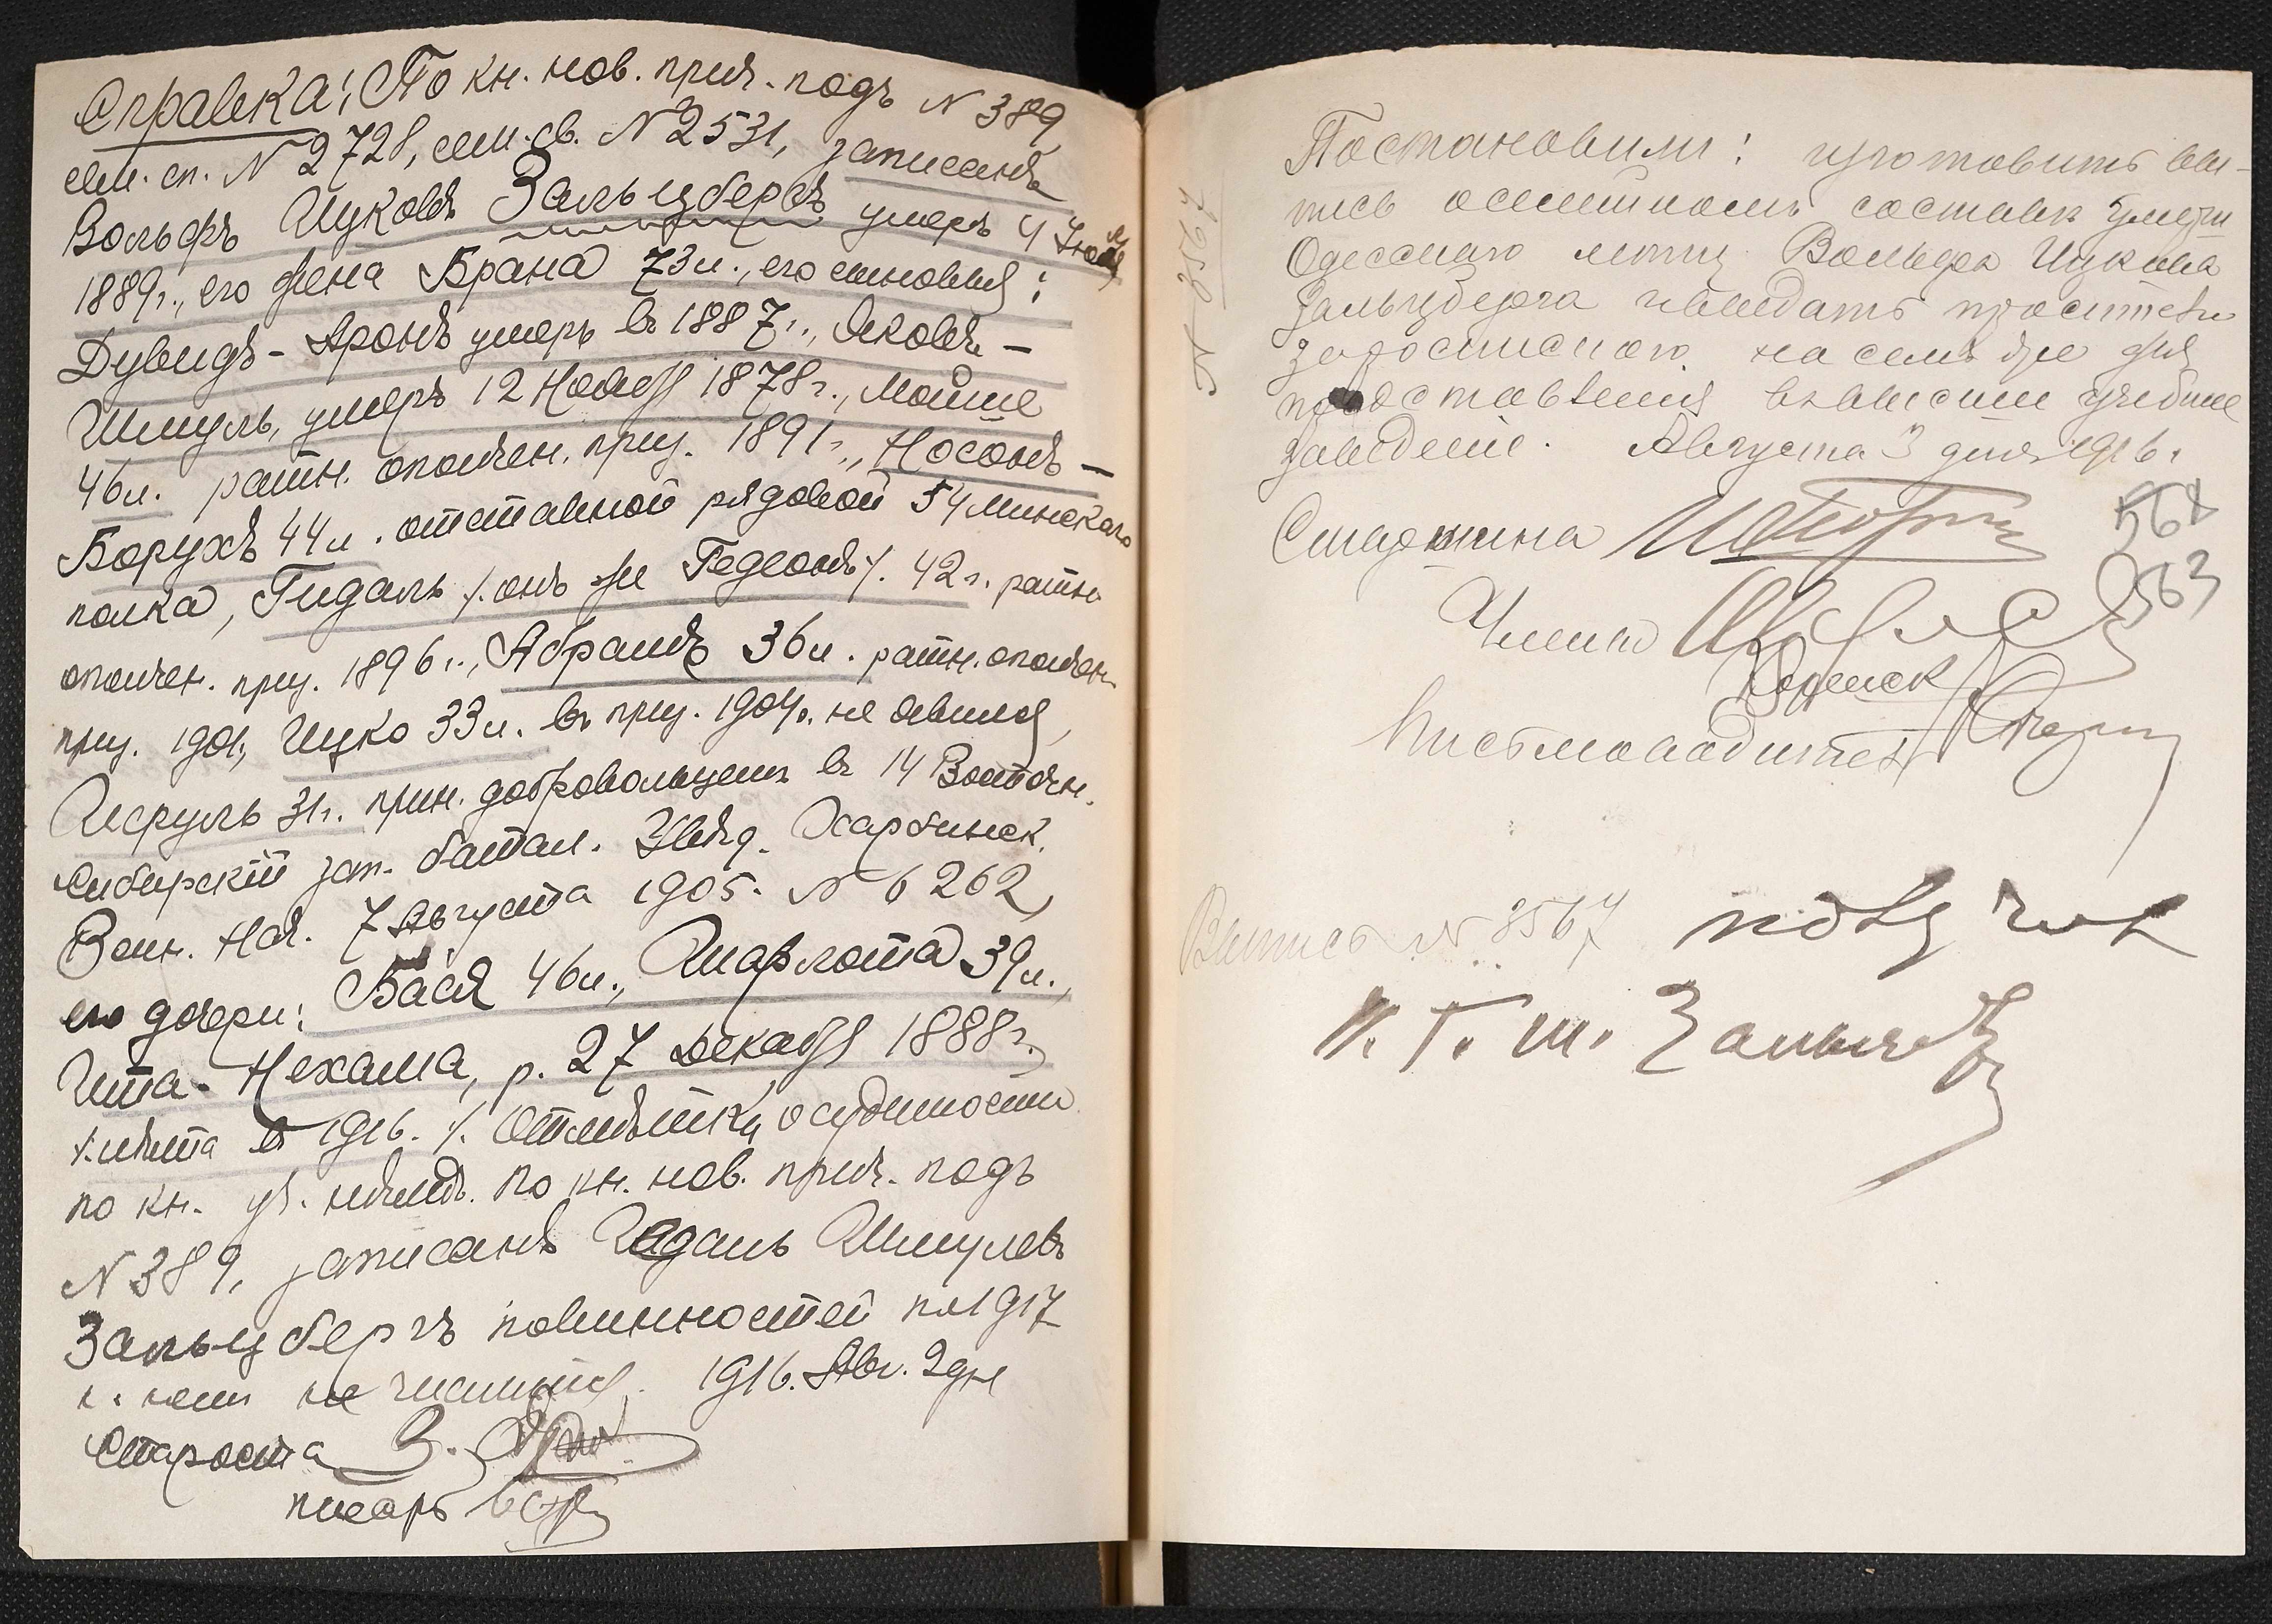 Справка: По кн. нов. прич. подъ N 389,
сем. сп. N 2728, сем. св. N 2531, записанъ
Вольфъ Ицковъ Зальцбергъ умеръ 4 Июля
1889 г., его жена Брана 73 л., его сыновья:
Дувидъ - Аронъ умеръ въ 1887 г., Яковъ -
Шмуль, умеръ 12 Ноября 1878 г., Мойше
46 л. ратн. ополчен. приз. 1891 г., Носонъ -
Борухъ 44 л. отставной рядовой 54 Минскаго
полка, Гидаль /. онъ же Гедеонъ /. 42 г. ратн.
ополчен. приз. 1896 г., Абрамъ 36 л. ратн. ополчен.
приз. 1901, Ицко 33 л. въ приз. 1904 г. не явился,
Исруль 31 г. прин. добровольцемъ въ 14 Восточн.
Сибирскій зап. батал. Увѣд. Харбинск.
Воин. Нач. 7 Августа 1905. N 6262,
его дочери: Бася 46 л., Шарлота 39 л.,
Ита - Нехама, р. 27 Декабря 1888 г.,
/. лѣта въ 1916. /. Отмѣтки о судимости
по кн. уч. нѣтъ. По кн. нов. прич. подъ
N 389, записанъ Гедаль Шмулевъ
Зальцбергъ повинностей по 1917
г. не числится. 1916. Авг. 2 дня
Староста
писарь
N 3567
Постановили: изготовить вы-
пись о семейномъ составѣ умерш.
Одесскаго мѣщ. Вольфа Ицкова
Зальцберга и выдать просителю
за роспискою на сем. для
представленія въ высшіи учебные
заведеніе. Августа 3 дня 1916 г.
Старшина
562
563
Члены
Письмоводитель
Выпись N 3567 получил
И. Г. Ш. Зальцберг